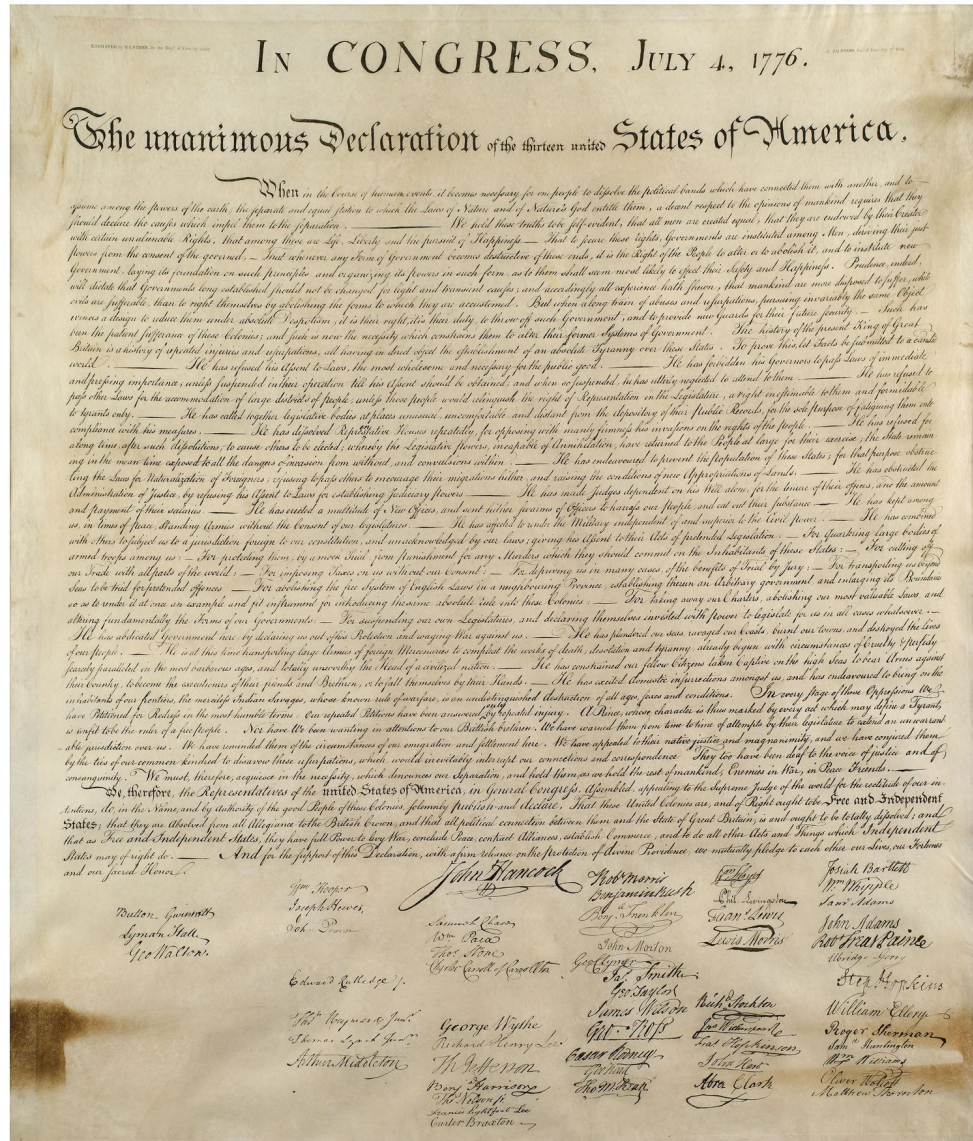 ENGRAVED by W.I.STONE for the Dept. of State by order
IN CONGRESS, JULY 4, 1776.
The unanimous Declaration of the thirteen united States of America,
When in the Course of human events, it becomes necessary for one people to dissolve the political bands which have connected them with another, and to
assume among the powers of the earth, the separate and equal station to which the Laws of Nature and of Nature's God entitle them, a decent respect to the opinions of mankind requires that they
should declare the causes which impel them to the separation. ——— We hold these truths to be self-evident, that all men are created equal, that they are endowed by their Creator
with certain unalienable Rights, that among these are Life, Liberty and the pursuit of Happiness.— That to secure these rights, Governments are instituted among Men, deriving their just
powers from the consent of the governed,— That whenever any Form of Government becomes destructive of these ends, it is the Right of the People to alter or to abolish it, and to institute new
Government, laying its foundation on such principles and organizing its powers in such form, as to them shall seem most likely to effect their Safety and Happiness. Prudence, indeed,
will dictate that Governments long established should not be changed for light and transient causes; and accordingly all experience hath shewn, that mankind are more disposed to suffer, while
evils are sufferable, than to right themselves by abolishing the forms to which they are accustomed. But when a long train of abuses and usurpations, pursuing invariably the same Object
evinces a design to reduce them under absolute Despotism, it is their right, it is their duty, to throw off such Government, and to provide new Guards for their future security.— Such has
been the patient sufferance of these Colonies; and such is now the necessity which constrains them to alter their former Systems of Government. The history of the present King of Great
Britain is a history of repeated injuries and usurpations, all having in direct object the establishment of an absolute Tyranny over these States. To prove this, let Facts be submitted to a candid
world. ——— He has refused his Assent to Laws, the most wholesome and necessary for the public good. ——— He has forbidden his Governors to pass Laws of immediate
and pressing importance, unless suspended in their operation till his Assent should be obtained; and when so suspended, he has utterly neglected to attend to them. ——— He has refused to
pass other Laws for the accommodation of large districts of people, unless those people would relinquish the right of Representation in the Legislature, a right inestimable to them and formidable
to tyrants only. ——— He has called together legislative bodies at places unusual, uncomfortable, and distant from the depository of their public Records, for the sole purpose of fatiguing them into
compliance with his measures. ——— He has dissolved Representative Houses repeatedly, for opposing with manly firmness his invasions on the rights of the people. ——— He has refused for
a long time, after such dissolutions, to cause others to be elected; whereby the Legislative powers, incapable of Annihilation, have returned to the People at large for their exercise; the State remain-
ing in the mean time exposed to all the dangers of invasion from without, and convulsions within. ——— He has endeavoured to prevent the population of these States; for that purpose obstruc-
ting the Laws for Naturalization of Foreigners; refusing to pass others to encourage their migrations hither, and raising the conditions of new Appropriations of Lands. ——— He has obstructed the
Administration of Justice, by refusing his Assent to Laws for establishing Judiciary powers. ——— He has made Judges dependent on his Will alone, for the tenure of their offices, and the amount
and payment of their salaries. ——— He has erected a multitude of New Offices, and sent hither swarms of Officers to harass our people, and eat out their substance. ——— He has kept among
us, in times of peace, Standing Armies without the Consent of our legislatures. ——— He has affected to render the Military independent of and superior to the Civil power. ——— He has combined
with others to subject us to a jurisdiction foreign to our constitution, and unacknowledged by our laws; giving his Assent to their Acts of pretended Legislation: — For Quartering large bodies of
armed troops among us: — For protecting them, by a mock Trial, from punishment for any Murders which they should commit on the Inhabitants of these States: — For cutting off
our Trade with all parts of the world: — For imposing Taxes on us without our Consent: — For depriving us in many cases, of the benefits of Trial by Jury: — For transporting us beyond
Seas to be tried for pretended offences — For abolishing the free System of English Laws in a neighbouring Province, establishing therein an Arbitrary government, and enlarging its Boundaries
so as to render it at once an example and fit instrument for introducing the same absolute rule into these Colonies: — For taking away our Charters, abolishing our most valuable Laws, and
altering fundamentally the Forms of our Governments: — For suspending our own Legislatures, and declaring themselves invested with power to legislate for us in all cases whatsoever. —
He has abdicated Government here, by declaring us out of his Protection and waging War against us. — He has plundered our seas, ravaged our Coasts, burnt our towns, and destroyed the lives
of our people. — He is at this time transporting large Armies of foreign Mercenaries to compleat the works of death, desolation and tyranny, already begun with circumstances of Cruelty & perfidy
scarcely paralleled in the most barbarous ages, and totally unworthy the Head of a civilized nation. — He has constrained our fellow Citizens taken Captive on the high Seas to bear Arms against
their Country, to become the executioners of their friends and Brethren, or to fall themselves by their Hands. — He has excited domestic insurrections amongst us, and has endeavoured to bring on the
inhabitants of our frontiers, the merciless Indian Savages, whose known rule of warfare, is an undistinguished destruction of all ages, sexes and conditions. In every stage of these Oppressions We
have Petitioned for Redress in the most humble terms: Our repeated Petitions have been answered only by repeated injury. A Prince, whose character is thus marked by every act which may define a Tyrant,
is unfit to be the ruler of a free people. Nor have We been wanting in attentions to our Brittish brethren. We have warned them from time to time of attempts by their legislature to extend an unwarrant-
able jurisdiction over us. We have reminded them of the circumstances of our emigration and settlement here. We have appealed to their native justice and magnanimity, and we have conjured them
by the ties of our common kindred to disavow these usurpations, which, would inevitably interrupt our connections and correspondence. They too have been deaf to the voice of justice and of
consanguinity. We must, therefore, acquiesce in the necessity, which denounces our Separation, and hold them, as we hold the rest of mankind, Enemies in War, in Peace Friends. ———
We, therefore, the Representatives of the united States of America, in General Congress, Assembled, appealing to the Supreme Judge of the world for the rectitude of our in-
tentions, do, in the Name, and by Authority of the good People of these Colonies, solemnly publish and declare, That these United Colonies are, and of Right ought to be Free and Independent
States; that they are Absolved from all Allegiance to the British Crown, and that all political connection between them and the State of Great Britain, is and ought to be totally dissolved; and
that as Free and Independent States, they have full Power to levy War, conclude Peace, contract Alliances, establish Commerce, and to do all other Acts and Things which Independent
States may of right do. ——— And for the support of this Declaration, with a firm reliance on the protection of divine Providence, we mutually pledge to each other our Lives, our Fortunes
and our sacred Honor.
Button Gwinnett
Lyman Hall
Geo Walton.
Wm Hooper
Joseph Hewes,
John Penn
Edward Rutledge /.
Thos Heyward Junr.
Thomas Lynch Junr.
Arthur Middleton
John Hancock
Samuel Chase
Wm Paca
Thos Stone
Charles Carroll of Carrollton
George Wythe
Richard Henry Lee
Th Jefferson
Benj Harrison
Thos Nelson jr.
Francis Lightfoot Lee
Carter Braxton
Robt Morris
Benjamin Rush
Benj. Franklin
John Morton
Geo Clymer
Jas. Smith
Geo. Taylor
James Wilson
Geo. Ross
Caesar Rodney
Geo Read
Tho M:Kean
Wm Floyd
Phil. Livingston
Frans. Lewis
Lewis Morris
Richd. Stockton
Jno Witherspoon
Fras. Hopkinson
John Hart
Abra Clark
Josiah Bartlett
Wm Whipple
Saml Adams
John Adams
Robt Treat Paine
Elbridge Gerry
Step Hopkins
William Ellery
Roger Sherman
Saml Huntington
Wm Williams
Oliver Wolcott
Matthew Thornton